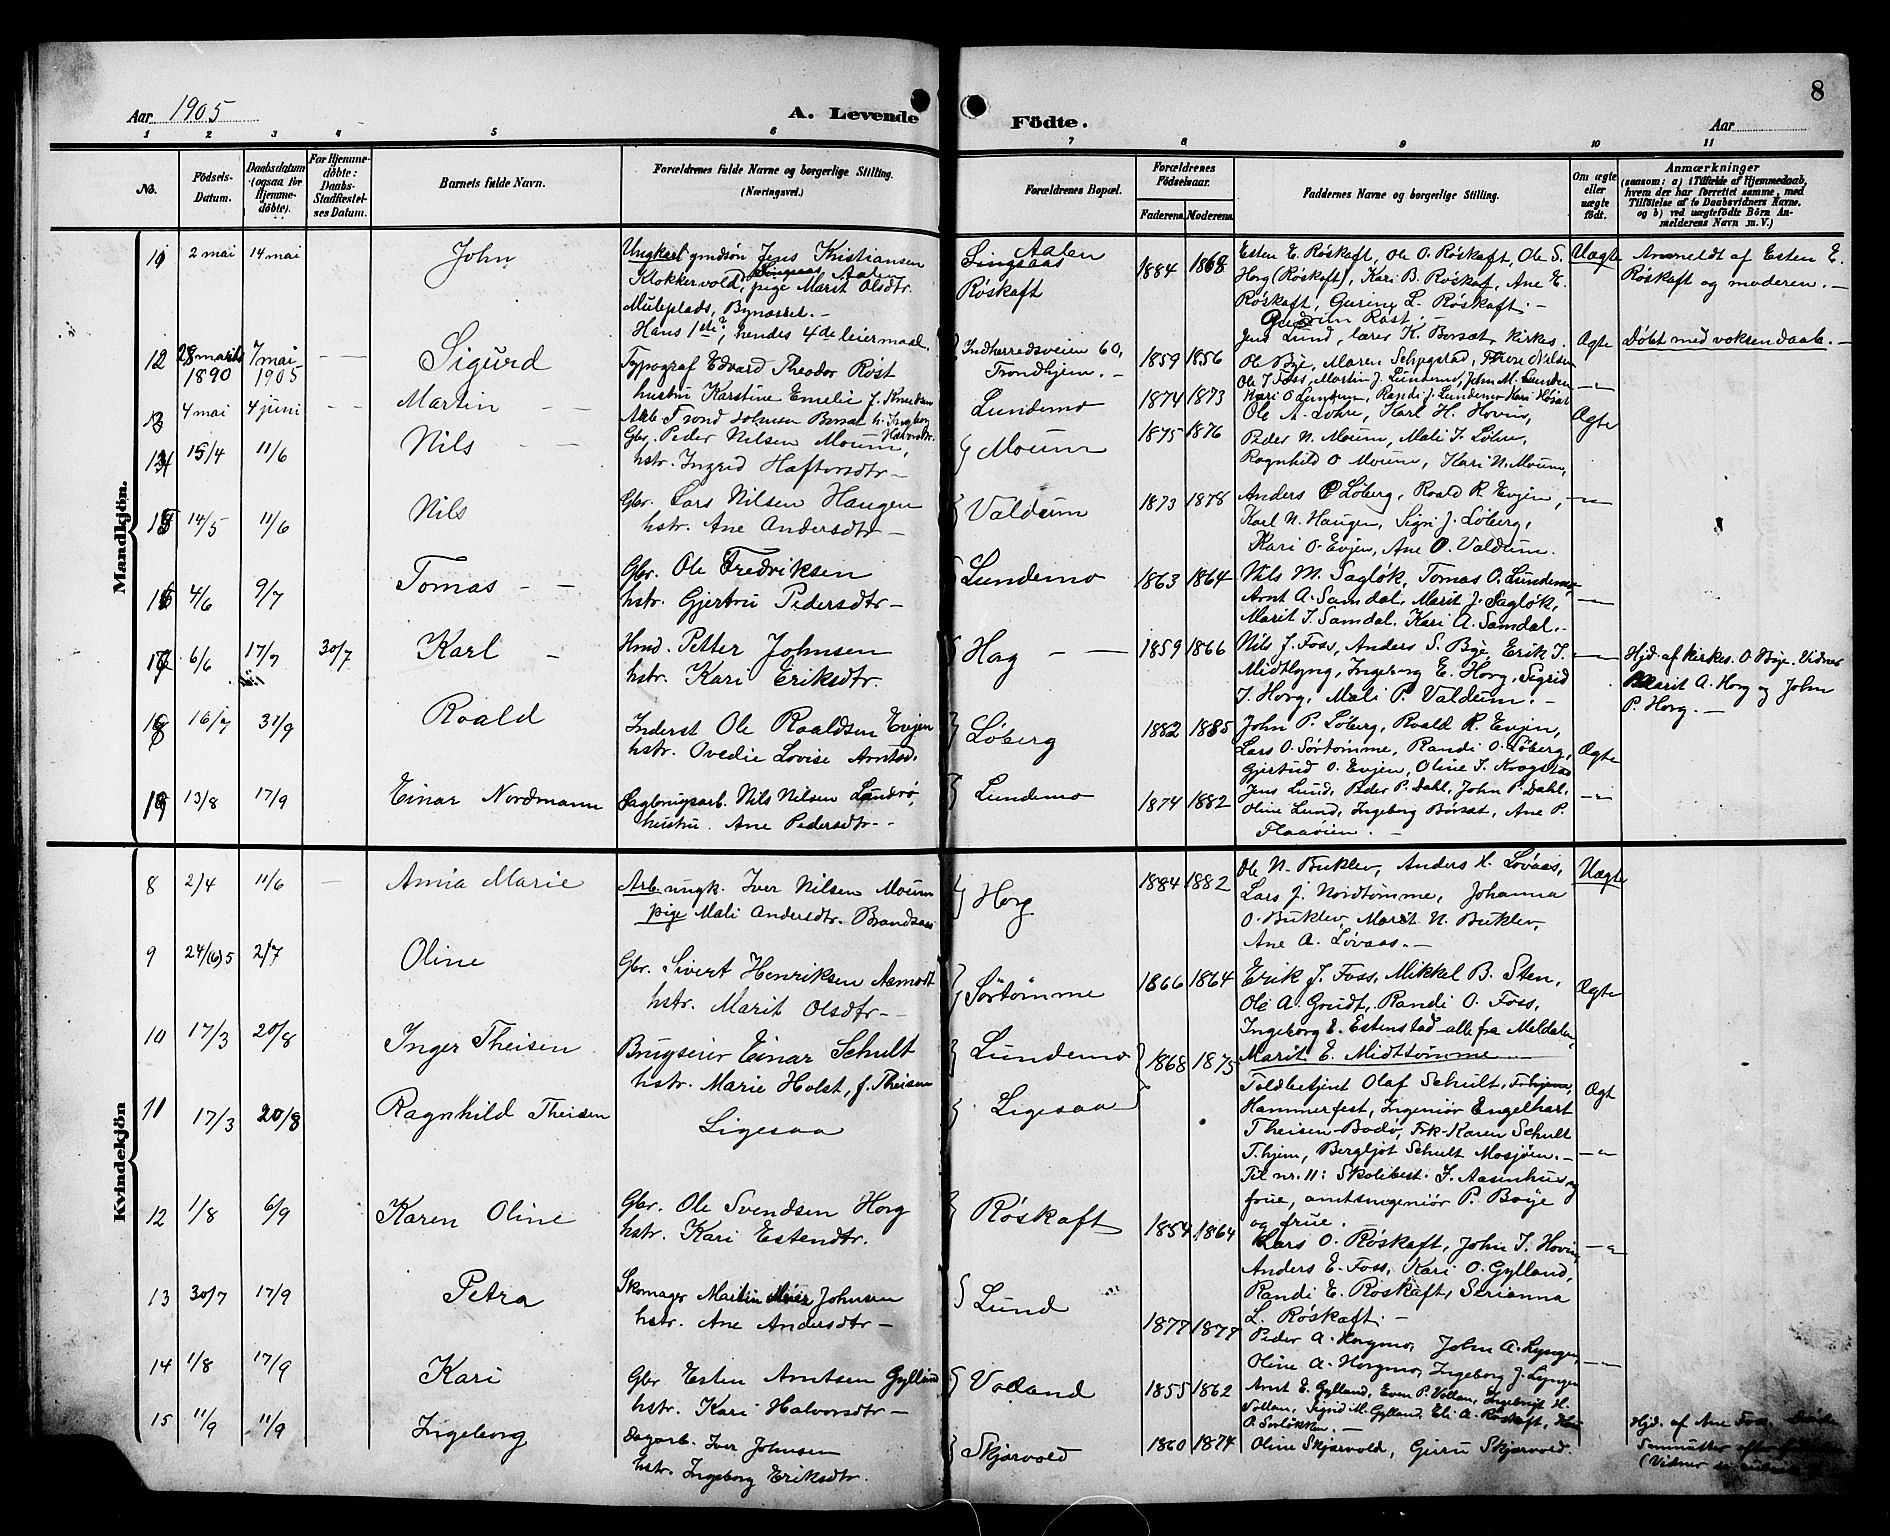 8
Aar 1905
A. Levende
Födte.
Aar
1 2 3 4 5 6 7 8 9 10 11
No.
Födsels-Datum.
Daabsdatum (ogsaa for Hjemme-döbte).
For Hjemme-döbte: Daabs-Stadfæstel-ses Datum.
Barnets fulde Navn.
Forældrenes fulde Navne og borgerlige Stilling. (Næringsvei.)
Forældrenes Bopæl.
Forældrenes Födselsaar.
Faderens. Moderens.
Faddernes Navne og borgerlige Stilling.
Om ægte eller uægte födt.
Anmærkninger
(saasom: a) i Tilfælde af Hjemmedaab, hvem der har forrettet samme, med Tilföielse af to Daabsvidners Navne, og b) ved uægtefödte Börn Anmelderens Navn m. V.)
Mandkjön.
11 2 mai 14 mai John
Ungkarl gmdsön Jens Kristiansen
Klokkervold, Singsaas Aalen pige Marit Olsdtr.
Muleplads, Bynæsset. –
Hans 1ste, hendes 4de leiermaal.
Singsaas Aalen
Röskaft
1884 1868
Esten E. Röskaft, Ole O. Röskaft, Ole S.
Horg (Röskaft), Kari B. Röskaf, Ane E.
Röskaft, Gurine L. Röskaft. –
Uægte
Anmeldt af Esten E.
Röskaft og moderen. –
12 28 marts 1890 7 mai 1905 – – Sigurd
Typograf Edvard Theodor Röst
hustru Karstine Emelie f. Knudsen
Indherredsveien 60,
Trondhjem. –
1859 1856
Gudrun Röst. –
Jens Lund, lærer K. Borsæt, kirkes.
Ole Böye, Maren Schjegstad, Thine Nilsen
Ægte
Döbt med voksendaab. –
13 4 mai 4 juni – – Martin – –
Arb. Trond Johnsen Borsæt h. Ingbor Halvorsdtr.
Lundemo
1874 1873
Ole T. Foss, Martin J. Lundemo, John M. Lundem
Kari O Lundem, Randi J. Lundemo Kari Horsæt
–„–
14 15/4 11/6 Nils – –
Gbr. Peder Nilsen Moum,
hstr. Ingrid Haftorsdtr –
Moum
1875 1876
Ole A. Löhre, Karl H. Hovin,
Peder N. Moum, Mali J. Löhre,
Ragnhild O Moum, Kari N. Moum,
Ægte
15 14/5 11/6 Nils
Gbr. Lars Nilsen Haugen
hstr. Ane Andersdtr –
Valdum
1873 1878
Anders P Löberg, Roald R. Evjen,
Karl N. Haugen, Sigri J. Löberg,
Kari O. Evjen, Ane O. Valdum.
–„–
16 4/6 9/7 Tomas – –
Gbr. Ole Fredriksen
hstr. Gjertru Pedersdtr –
Lundemo
1863 1864
Nils M. Saglök, Tomas O. Lundemo,
Arnt A. Samdal, Marit J. Saglök,
Marit T. Samdal, Kari A. Samdal. –
–„–
17 6/6 17/7 30/7 Karl –
Hmd. Petter Johnsen
hstr. Kari Eriksdtr.
Hog – –
1859 1866
Nils J. Foss, Anders S. Bye, Erik T.
Midtlyng, Ingeborg E. Horg, Sigrid
T. Horg, Mali P. Valdum. –
–„–
Hjd. af kirkes. O Böye. Vidner
Marit A. Horg og John
P. Horg. –
18 16/7 31/9 Roald
Inderst Ole Roaldsen Evjen
hstr. Ovedie Lovise Arntsd.
Löberg
1882 1885
John P. Löberg, Roald R. Evjen,
Lars O. Sörtömme, Randi O. Löberg,
Gjertrud O. Evjen, Oline T. Krogstad
Ægte
19 13/8 17/9 Einar Nordmann
Sagbrugsarb. Nils Nilsen Lundrö,
hustru. Ane Pedersdtr –
Lundemo
1874 1882
Jens Lund, Peder P. Dahl, John P. Dahl,
Oline Lund, Ingeborg Börsæt, Ane P.
Flaaöien. –
–„–
Kvindekjön
8 2/4 11/6 – Anna Marie
Arb. ungk. Iver Nilsen Moum
pige Mali Andersdtr. Brandsaas
Horg
1884 1882
Ole N. Buklev, Anders H. Lövaas,
Lars J. Nordtömme, Johanna
O. Buklev, Marit N. Buklev,
Ane A. Lövaas. –
Uægte
9 24/(6) 5 2/7 Oline
Gbr. Sivert Henriksen Aamodt
hstr. Marit Olsdtr –
Sörtömme
1866 1864
Erik J. Foss, Mikkel B. Sten,
Ole A. Grudt, Randi O. Foss,
Ingeborg E. Estenstad – alle fra Meldalen,
Marit E. Midttömme
Ægte
10 17/3 20/8 Inger Theisen
Brugseier Einar Schult
hstr. Marie Holst, f. Theisen
Lundemo
1868 1875
Toldbetjent Olaf Schult, Trhjem,
Hammerfest, Ingeniör Engelhart
Theisen – Bodö, Frk. Karen Schult
T.hjem, Bergljot Schult Mosjöen. –
Ægt
11 17/3 20/8 Ragnhild Theisen
Ligesaa
Ligesaa
Til nr. 11: Skolibest. J. Aasenhus og
frue, amtsingeniör P. Böye
og frue.
–„–
12 1/8 6/9 Karen Oline
Gbr. Ole Svendsen Horg
hstr. Kari Estendtr.
Röskaft
1854 1864
Lars O. Röskaft, John T. Hovin,
Anders E. Foss, Kari O. Gylland,
Randi E. Röskaft, Serianna
L. Röskaft. –
–„–
13 30/7 17/9 Petra
Skomager Martin Johnsen
hstr. Ane Andersdtr –
Lund
1877 1877
Peder A. Horgmo, John A. Lyngen,
Oline A. Horgmo, Ingeborg J. Lyngen
–„–
14 1/8 17/9 Kari
Gbr Esten Arntsen Gylland
hstr. Kari Halvorsdtr –
Volland
1855 1862
Arnt E. Gylland, Even P. Vollan, Ingebrigt H.
Vollan, Sigrid M. Gylland, Eli A. Röskaft,
A Sorlökken. –
15 11/9 11/9 Ingeborg
Dagarb. Iver Johnsen
hstr. Ingeborg Eriksdtr.
Skjærvold
1860 1874
Oline Skjærvold, Guru Skjærvold.
Hjd. af Ane Foss.
(Vidner